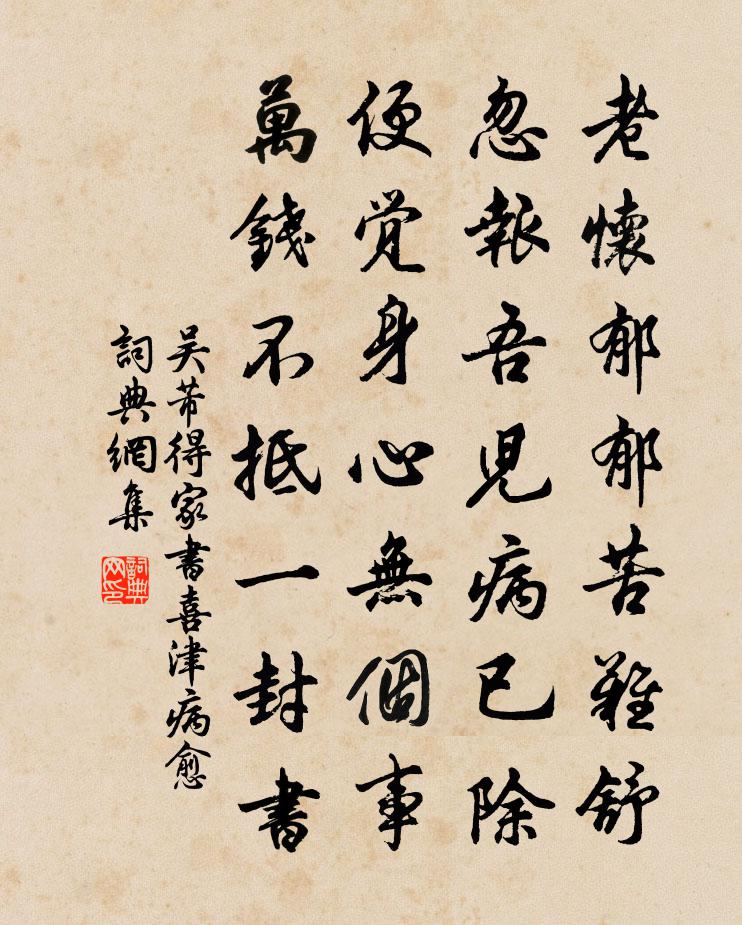 老懷郁郁苦難舒
忽報吾兒病已除
便覺身心無個事
萬錢不抵一封書
吴芾得家書喜津病愈
詞典網集
詞典网印